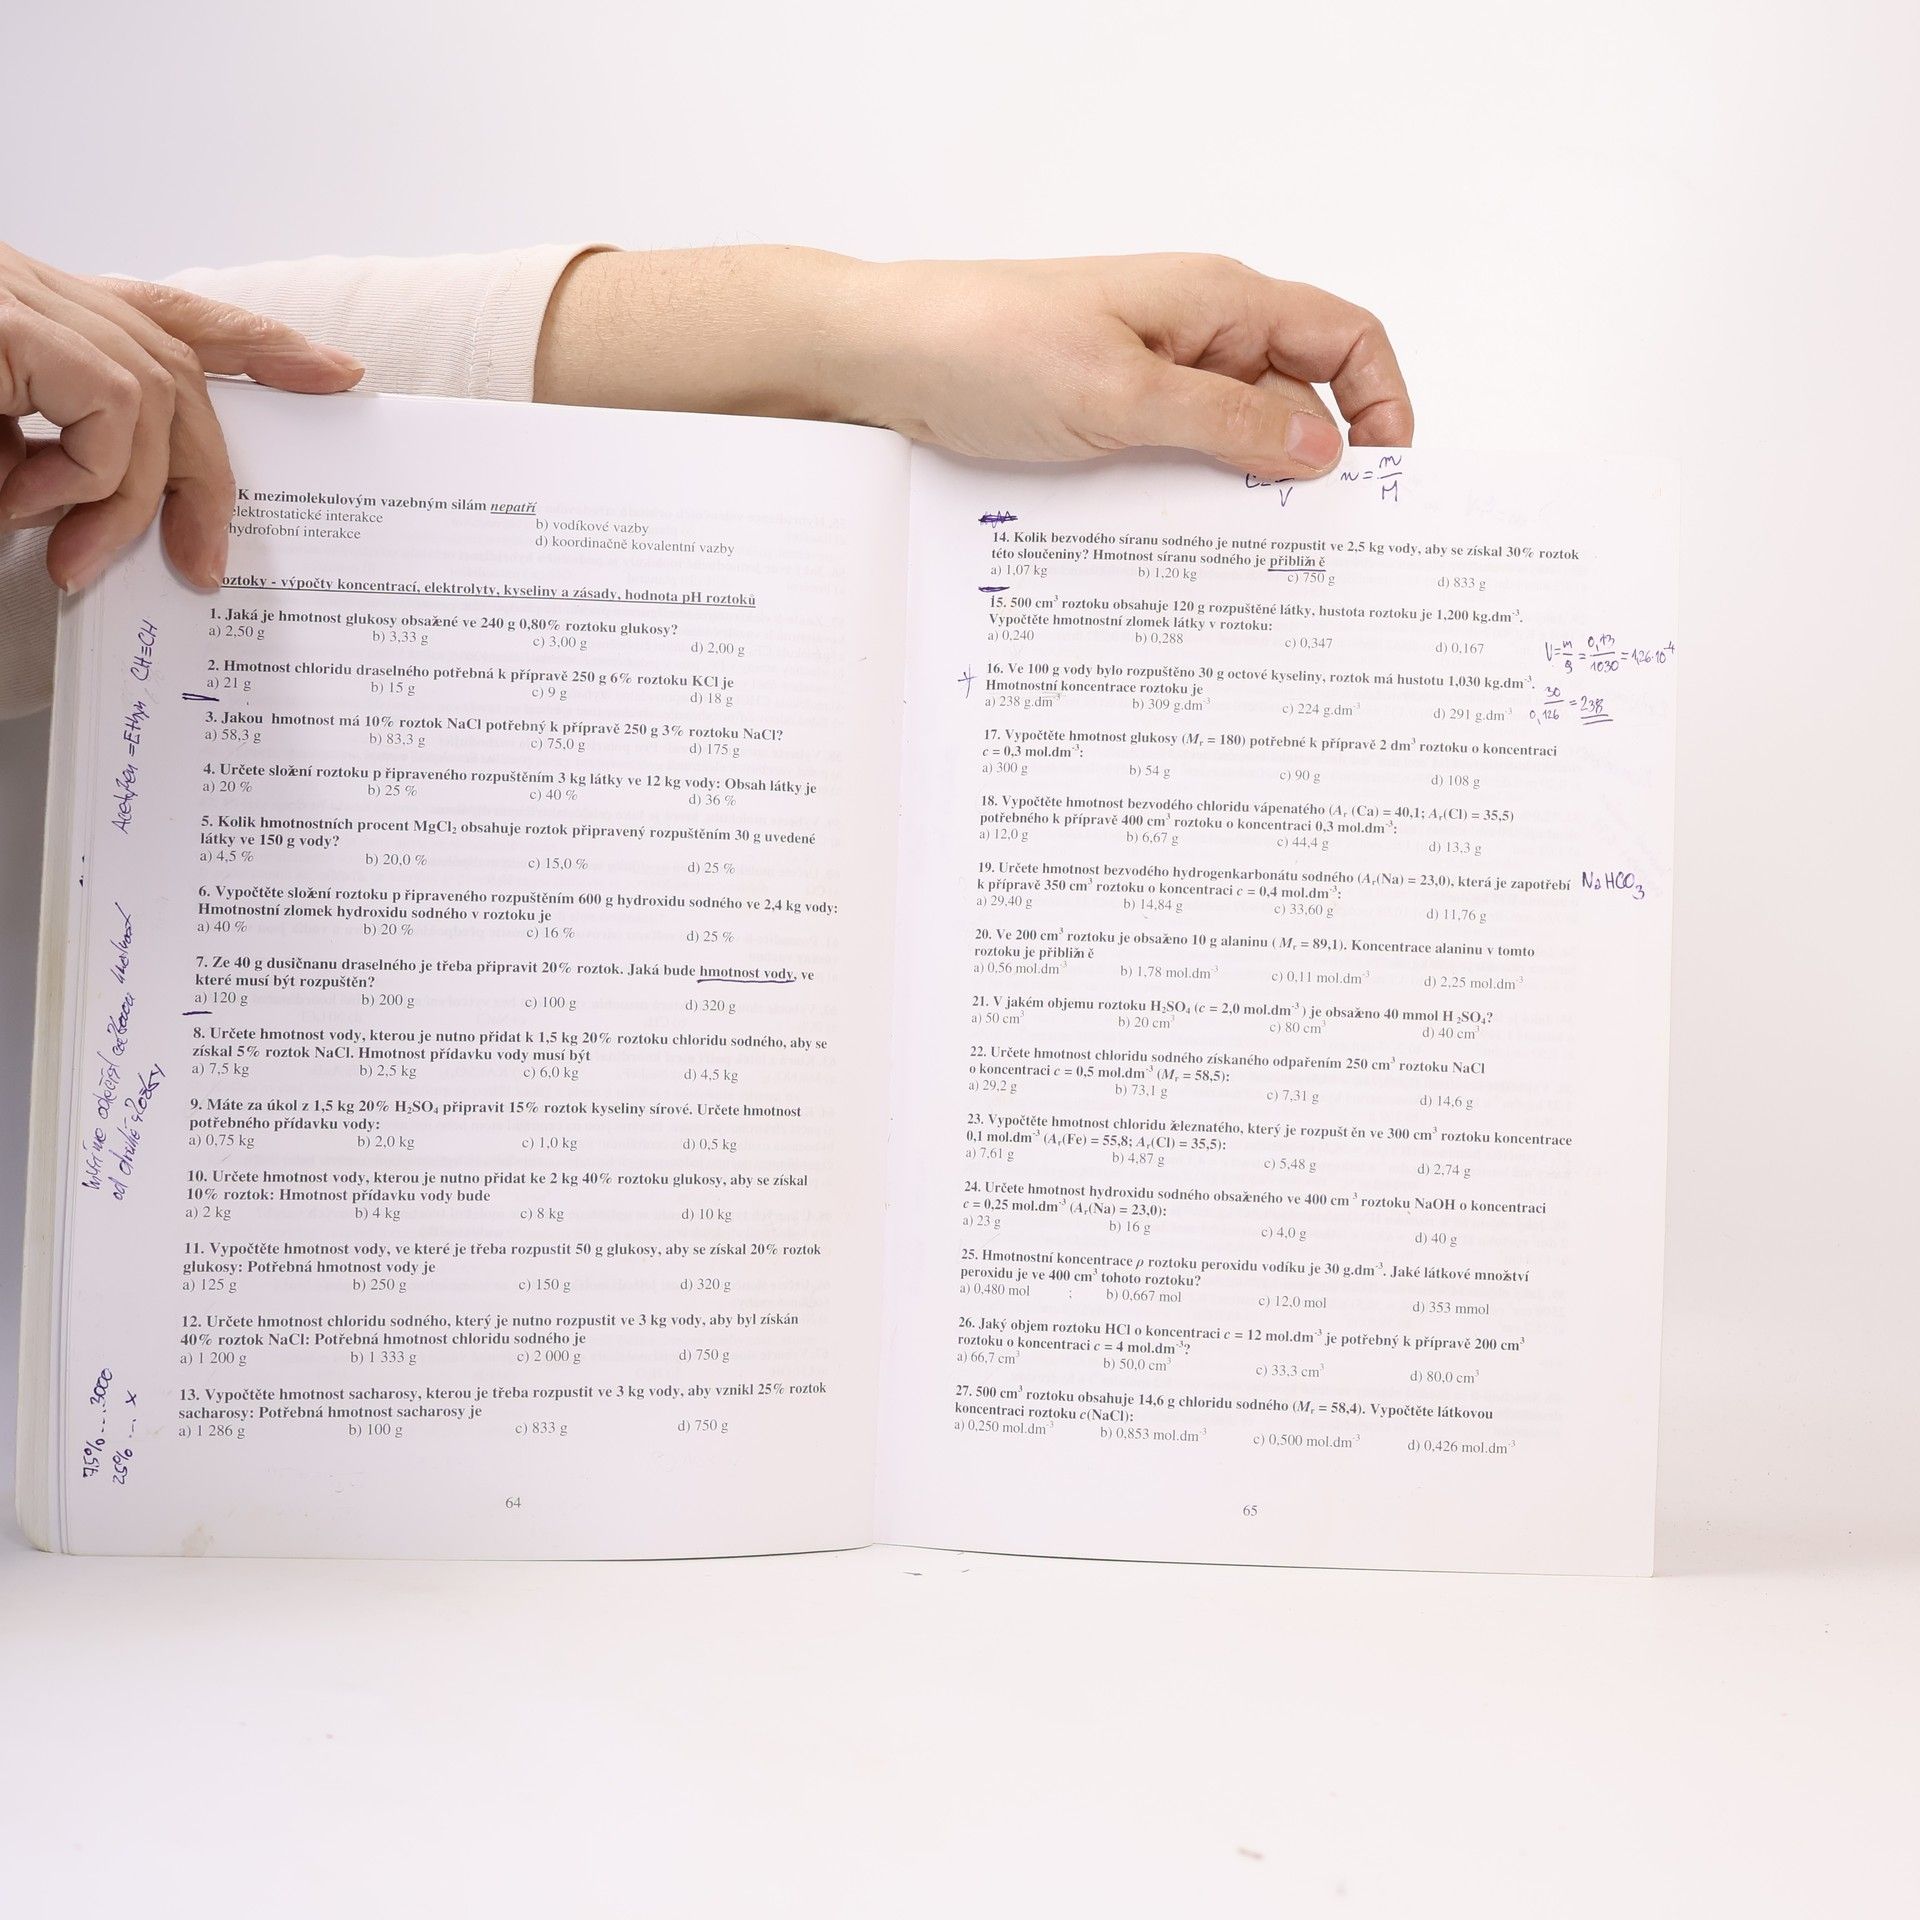 K mezimolekulovým vazebným silám nepatří
elektrostatické interakce b) vodíkové vazby
hydrofobní interakce d) koordinačně kovalentní vazby
oztoky - výpočty koncentrací, elektrolyty, kyseliny a zásady, hodnota pH roztoků
1. Jaká je hmotnost glukosy obsažené ve 240 g 0,80% roztoku glukosy?
a) 2,50 g b) 3,33 g c) 3,00 g d) 2,00 g
2. Hmotnost chloridu draselného potřebná k přípravě 250 g 6% roztoku KCl je
a) 21 g b) 15 g c) 9 g d) 18 g
3. Jakou hmotnost má 10% roztok NaCl potřebný k přípravě 250 g 3% roztoku NaCl?
a) 58,3 g b) 83,3 g c) 75,0 g d) 175 g
4. Určete složení roztoku p řipraveného rozpuštěním 3 kg látky ve 12 kg vody: Obsah látky je
a) 20 % b) 25 % c) 40 % d) 36 %
5. Kolik hmotnostních procent MgCl₂ obsahuje roztok připravený rozpuštěním 30 g uvedené
látky ve 150 g vody?
a) 4,5 % b) 20,0 % c) 15,0 % d) 25 %
6. Vypočtěte složení roztoku p řipraveného rozpuštěním 600 g hydroxidu sodného ve 2,4 kg vody:
Hmotnostní zlomek hydroxidu sodného v roztoku je
a) 40 % b) 20 % c) 16 % d) 25 %
7. Ze 40 g dusičnanu draselného je třeba připravit 20% roztok. Jaká bude hmotnost vody, ve
které musí být rozpuštěn?
a) 120 g b) 200 g c) 100 g d) 320 g
8. Určete hmotnost vody, kterou je nutno přidat k 1,5 kg 20% roztoku chloridu sodného, aby se
získal 5% roztok NaCl. Hmotnost přídavku vody musí být
a) 7,5 kg b) 2,5 kg c) 6,0 kg d) 4,5 kg
9. Máte za úkol z 1,5 kg 20% H₂SO₄ připravit 15% roztok kyseliny sírové. Určete hmotnost
potřebného přídavku vody:
a) 0,75 kg b) 2,0 kg c) 1,0 kg d) 0,5 kg
10. Určete hmotnost vody, kterou je nutno přidat ke 2 kg 40% roztoku glukosy, aby se získal
10% roztok: Hmotnost přídavku vody bude
a) 2 kg b) 4 kg c) 8 kg d) 10 kg
11. Vypočtěte hmotnost vody, ve které je třeba rozpustit 50 g glukosy, aby se získal 20% roztok
glukosy: Potřebná hmotnost vody je
a) 125 g b) 250 g c) 150 g d) 320 g
12. Určete hmotnost chloridu sodného, který je nutno rozpustit ve 3 kg vody, aby byl získán
40% roztok NaCl: Potřebná hmotnost chloridu sodného je
a) 1 200 g b) 1 333 g c) 2 000 g d) 750 g
13. Vypočtěte hmotnost sacharosy, kterou je třeba rozpustit ve 3 kg vody, aby vznikl 25% roztok
sacharosy: Potřebná hmotnost sacharosy je
a) 1 286 g b) 100 g c) 833 g d) 750 g
64
Acetylen = Ethyn CH≡CH
od druhé složky
75% ... 3000
25% ... x
V n = m/M
14. Kolik bezvodého síranu sodného je nutné rozpustit ve 2,5 kg vody, aby se získal 30% roztok
této sloučeniny? Hmotnost síranu sodného je přibližn ě
a) 1,07 kg b) 1,20 kg c) 750 g d) 833 g
15. 500 cm³ roztoku obsahuje 120 g rozpuštěné látky, hustota roztoku je 1,200 kg.dm⁻³.
Vypočtěte hmotnostní zlomek látky v roztoku:
a) 0,240 b) 0,288 c) 0,347 d) 0,167
V = m/ρ = 0,13/1030 = 1,26·10⁻⁴
16. Ve 100 g vody bylo rozpuštěno 30 g octové kyseliny, roztok má hustotu 1,030 kg.dm⁻³.
Hmotnostní koncentrace roztoku je
a) 238 g.dm⁻³ b) 309 g.dm⁻³ c) 224 g.dm⁻³ d) 291 g.dm⁻³
30/0,126 = 238
17. Vypočtěte hmotnost glukosy (Mᵣ = 180) potřebné k přípravě 2 dm³ roztoku o koncentraci
c = 0,3 mol.dm⁻³:
a) 300 g b) 54 g c) 90 g d) 108 g
18. Vypočtěte hmotnost bezvodého chloridu vápenatého (Aᵣ (Ca) = 40,1; Aᵣ(Cl) = 35,5)
potřebného k přípravě 400 cm³ roztoku o koncentraci 0,3 mol.dm⁻³:
a) 12,0 g b) 6,67 g c) 44,4 g d) 13,3 g
19. Určete hmotnost bezvodého hydrogenkarbonátu sodného (Aᵣ(Na) = 23,0), která je zapotřebí NaHCO₃
k přípravě 350 cm³ roztoku o koncentraci c = 0,4 mol.dm⁻³:
a) 29,40 g b) 14,84 g c) 33,60 g d) 11,76 g
20. Ve 200 cm³ roztoku je obsaženo 10 g alaninu ( Mᵣ = 89,1). Koncentrace alaninu v tomto
roztoku je přibližn ě
a) 0,56 mol.dm⁻³ b) 1,78 mol.dm⁻³ c) 0,11 mol.dm⁻³ d) 2,25 mol.dm⁻³
21. V jakém objemu roztoku H₂SO₄ (c = 2,0 mol.dm⁻³ ) je obsaženo 40 mmol H ₂SO₄?
a) 50 cm³ b) 20 cm³ c) 80 cm³ d) 40 cm³
22. Určete hmotnost chloridu sodného získaného odpařením 250 cm³ roztoku NaCl
o koncentraci c = 0,5 mol.dm⁻³ (Mᵣ = 58,5):
a) 29,2 g b) 73,1 g c) 7,31 g d) 14,6 g
23. Vypočtěte hmotnost chloridu železnatého, který je rozpušt ěn ve 300 cm³ roztoku koncentrace
0,1 mol.dm⁻³ (Aᵣ(Fe) = 55,8; Aᵣ(Cl) = 35,5):
a) 7,61 g b) 4,87 g c) 5,48 g d) 2,74 g
24. Určete hmotnost hydroxidu sodného obsaženého ve 400 cm ³ roztoku NaOH o koncentraci
c = 0,25 mol.dm⁻³ (Aᵣ(Na) = 23,0):
a) 23 g b) 16 g c) 4,0 g d) 40 g
25. Hmotnostní koncentrace ρ roztoku peroxidu vodíku je 30 g.dm⁻³. Jaké látkové množství
peroxidu je ve 400 cm³ tohoto roztoku?
a) 0,480 mol b) 0,667 mol c) 12,0 mol d) 353 mmol
26. Jaký objem roztoku HCl o koncentraci c = 12 mol.dm⁻³ je potřebný k přípravě 200 cm³
roztoku o koncentraci c = 4 mol.dm⁻³?
a) 66,7 cm³ b) 50,0 cm³ c) 33,3 cm³ d) 80,0 cm³
27. 500 cm³ roztoku obsahuje 14,6 g chloridu sodného (Mᵣ = 58,4). Vypočtěte látkovou
koncentraci roztoku c(NaCl):
a) 0,250 mol.dm⁻³ b) 0,853 mol.dm⁻³ c) 0,500 mol.dm⁻³ d) 0,426 mol.dm⁻³
65